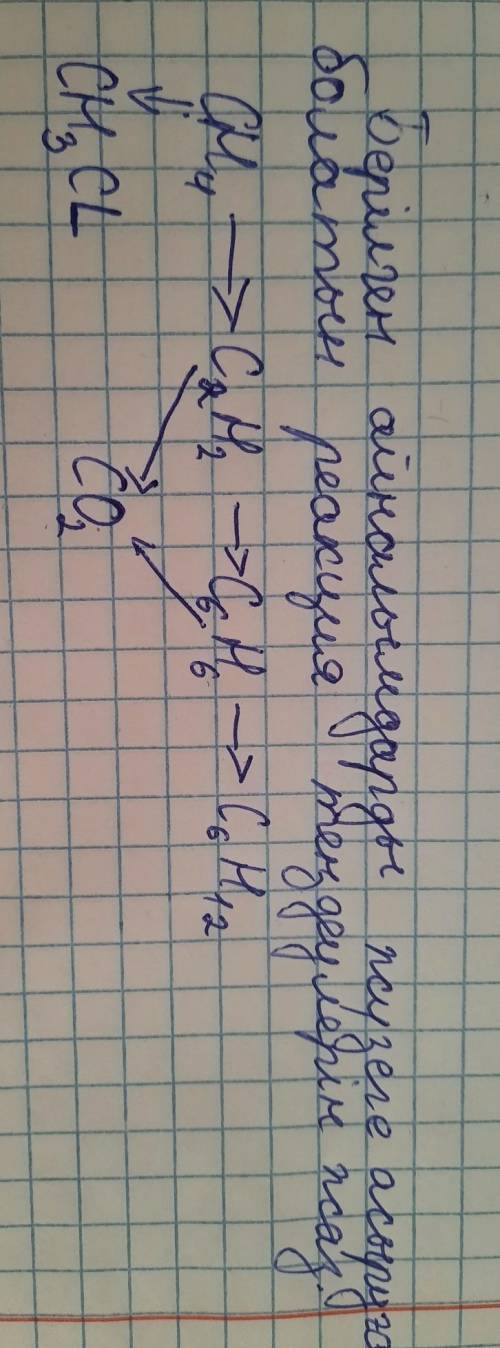 Берілген айналымдарды жүзеге асыруға
болатын реакция теңдеулерін жаз.
CH₄ → C₂H₂ → C₆H₆ → C₆H₁₂
CH₃CL CO₂